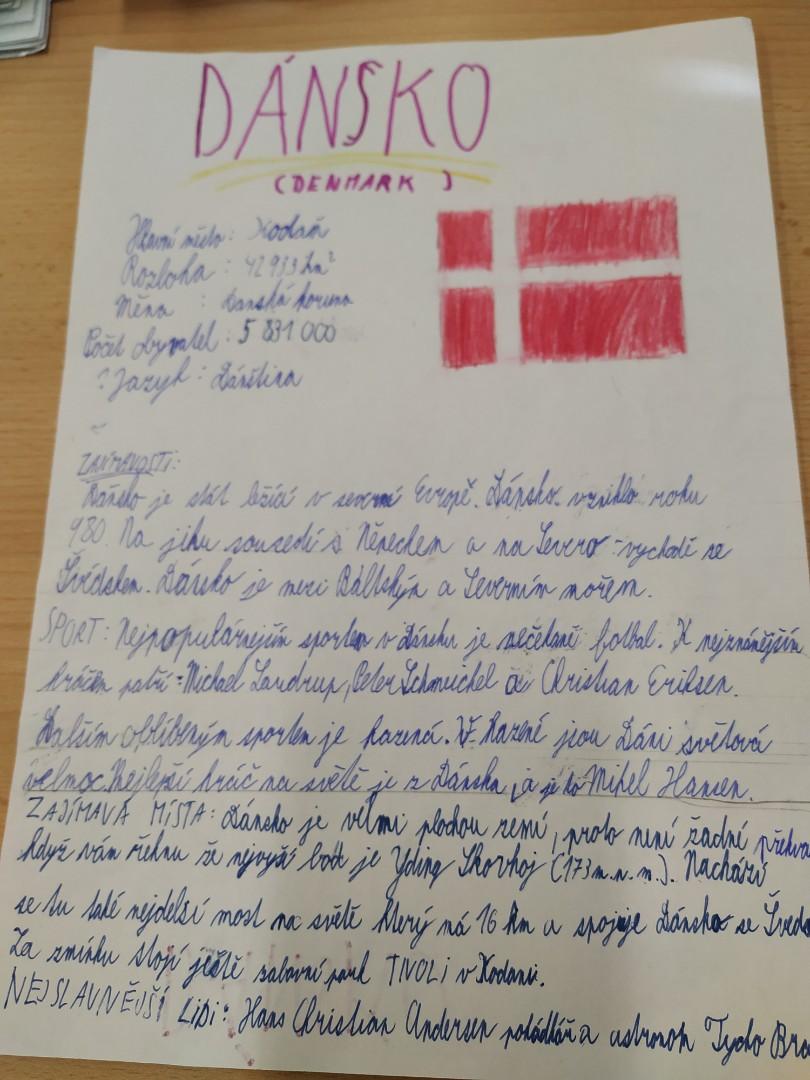 DÁNSKO
(DENMARK)
Hlavní město: Kodaň
Rozloha : 42 933 km²
Měna : Danská koruna
Počet obyvatel : 5 831 000
Jazyk : Dánština
ZAJÍMAVOSTI:
Dánsko je stát ležící v severní Evropě. Dánsko vzniklo roku
980. Na jihu sousedí s Německem a na Severo-vychodě se
Švédskem. Dánsko je mezi Báltským a Severním mořem.
SPORT: Nejpopulárnejším sportem v Dánsku je nečekaně fotbal. K nejznánějším
hráčům patří: Michael Laudrup, Peter Schmeichel a Christian Eriksen.
Dalším oblíbeným sportem je hazená. V Hazené jsou Dáni světová
velmoc. Nejlepší hráč na světě je z Dánska, a je to Mikel Hansen.
ZAJÍMAVÁ MÍSTA: Dánsko je velmi plochou zemí, proto není žádné překva
když vám řeknu že nejvyší bod je Yding Skovhoj (173 m.n.m.). Nachází
se tu také nejdelší most na světě který má 16 km a spojuje Dánsko se Švéds
Za zmínku stojí ještě zabavní park TIVOLI v Kodani.
NEJSLAVNĚJŠÍ LIDI: Hans Christian Andersen pohádkář a astronom Tycho Bra